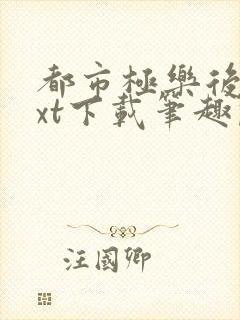 都市極樂後
xt下載筆趣
汪國卿